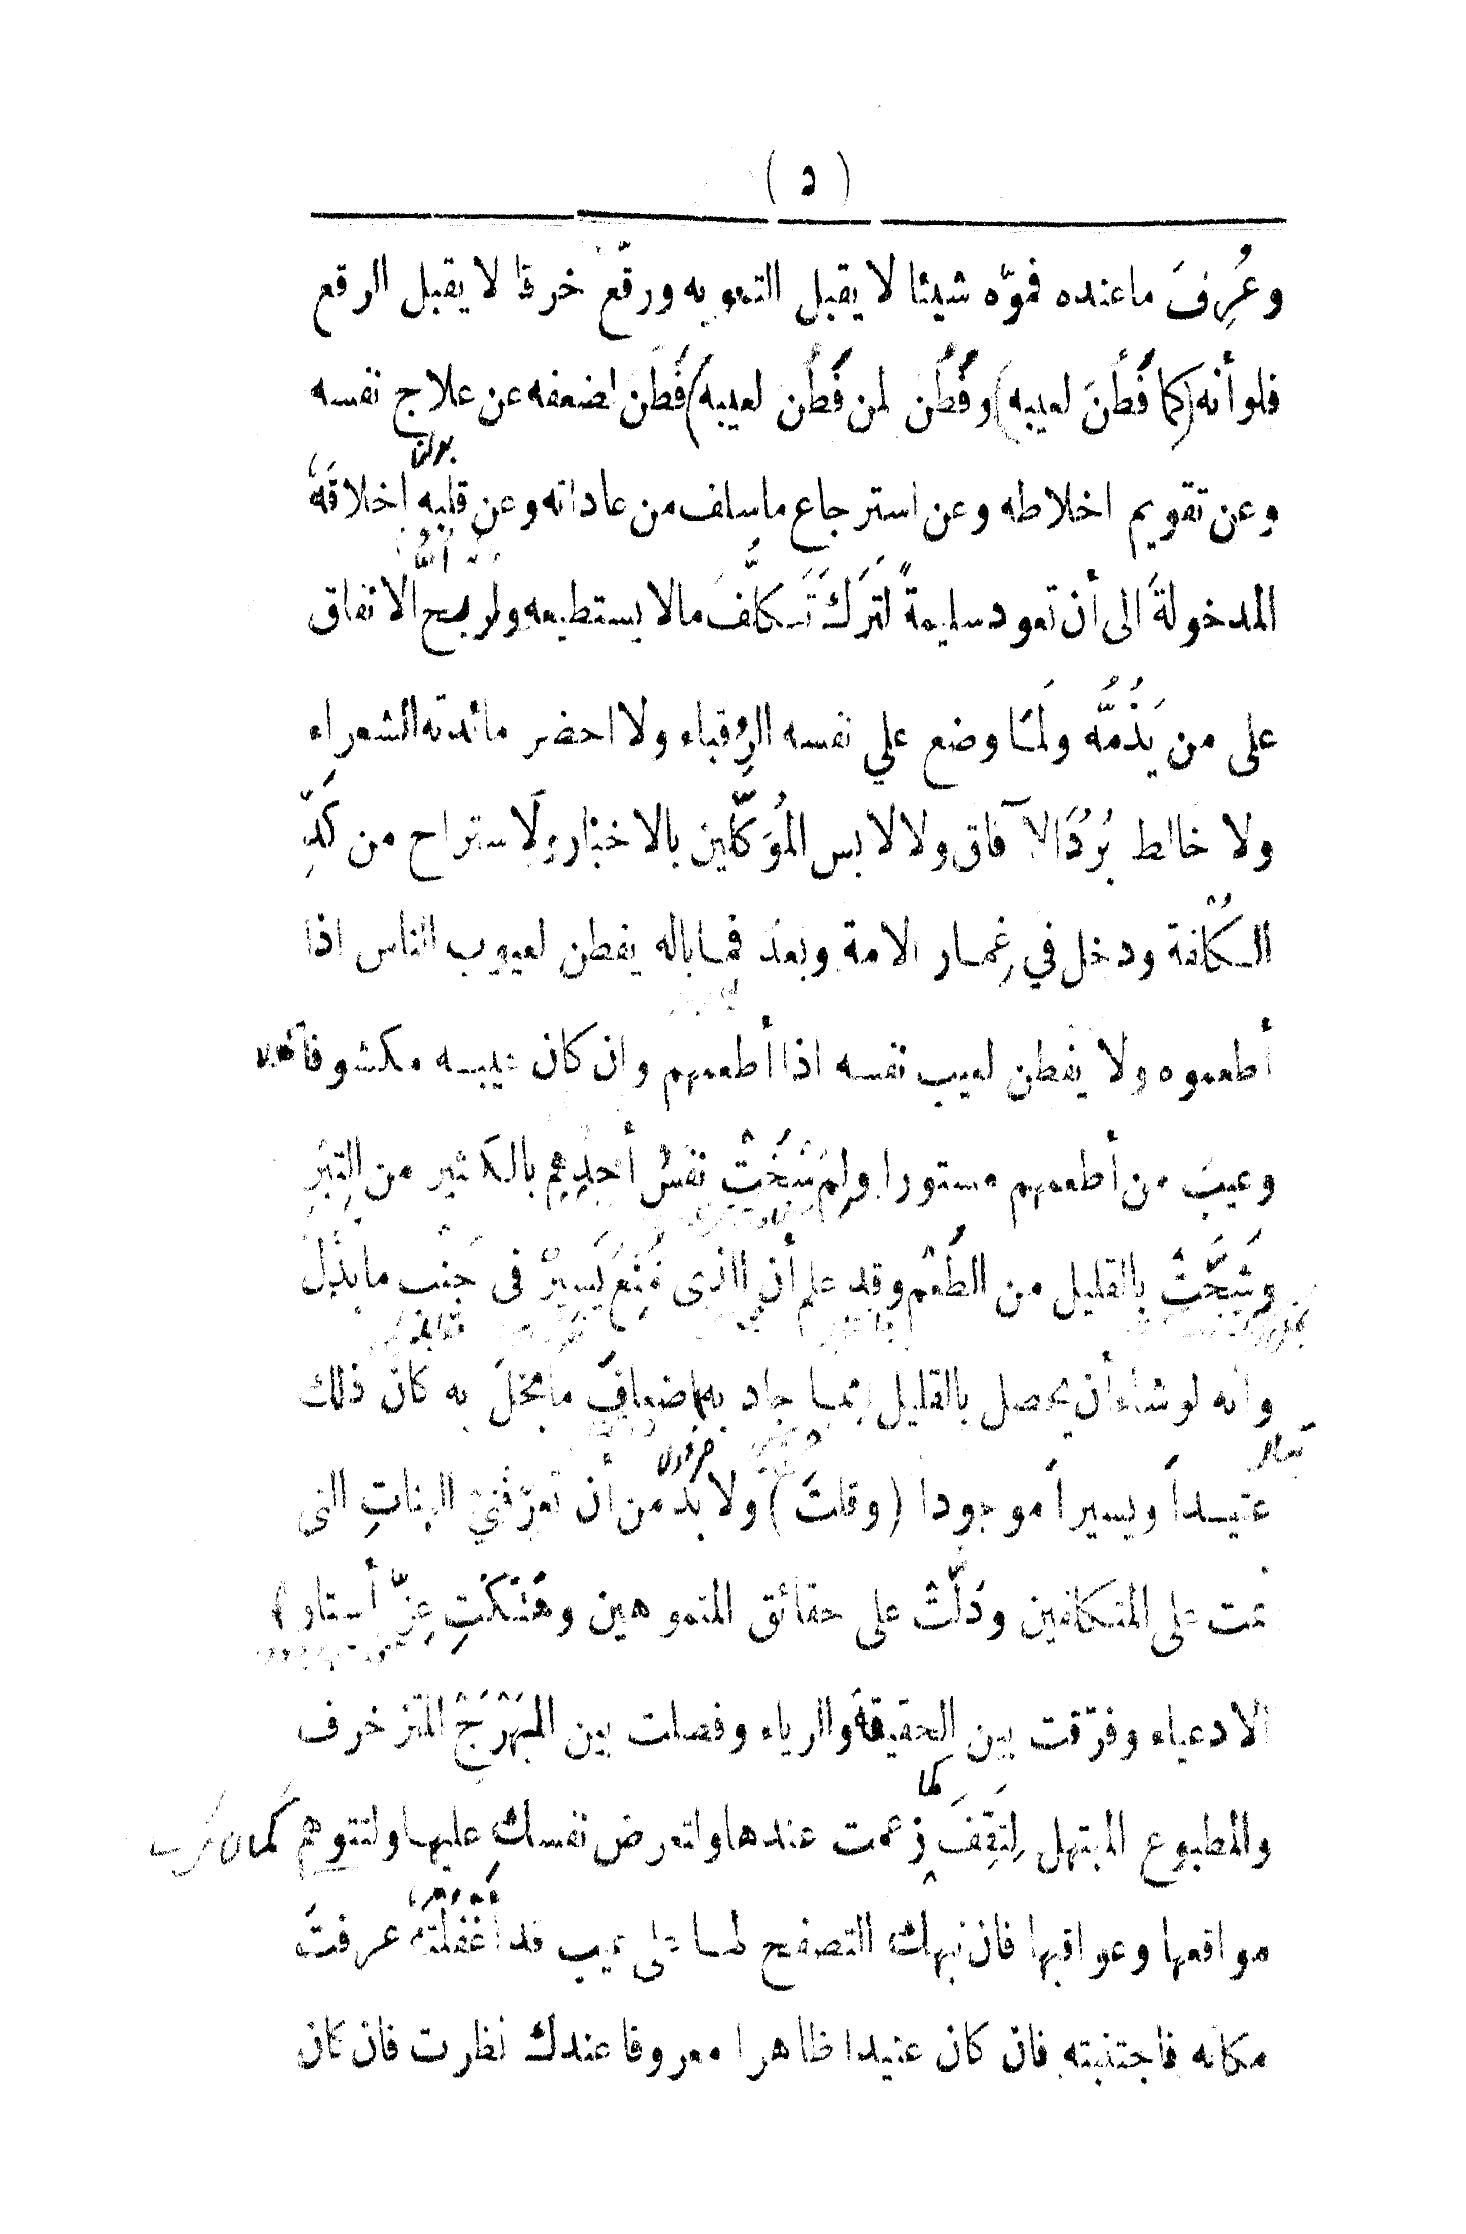 ( ٥ )
وعُرِفَ ماعنده فموّه شيئا لا يقبل التمويه ورقّع خرقا لا يقبل الرقع
فلو أنه (كما فَطَنَ لعيبه) وفَطُن لمن فَطَن لعيبه) فَطَن لضعفه عن علاج نفسه
وعن تقويم اخلاطه وعن استرجاع ماسلف من عاداته وعن قلبِه اخلاقَه
المدخولةَ الى أن تعود سليمةً لَتَرَكَ تَكلُّفَ مالا يستطيعه ولربح الانفاق
على من يَذُمُّه ولَمَا وضع علي نفسه الرقباء ولا احضر مائدته الشعراء
ولا خالط بُرُدَ الآفاق ولا لابس المُوَكَّلين بالاخبار ولَاستراح من كَدِّ
الكُلْفة ودخل في غِمار الامة وبعدُ فما باله يفطن لعيوب الناس اذا
أطعموه ولا يفطن لعيب نفسه اذا أطعمهم وان كان عيبه مكشوفا
وعيبَ من أطعمهم مستورا ولِمَ سَخَتْ نفسُ أحدِهم بالكثير من التِبْرِ
وشَحَّتْ بالقليل من الطُعْم وقد علم أن الذى مُنِعَ يَسِيرٌ فى جَنْب ما بذَل
وأنه لو شاء أن يحصل بالقليل مما جاد به أضعافَ ما بخل به كان ذلك
عتيداً ويسيراً موجودا (وقلتَ) ولا بدّ من أن تعرّفَني الهناتِ التى
نمت على المتكلفين ودَلَّتْ على حقائق المتموهين وهَتَكَتْ عن أستار
الادعياء وفرّقت بين الحقيقة والرياء وفصلت بين المُبَهْرَجْ المتزخرف
والمطبوع المبتهل لِتَقِفَ زعمت عندها ولتعرض نفسك عليها ولتتوهم
مواقعها وعواقبها فان نبهك التصفح لها على عيب قد أَغْفَلْتَه عرفتَ
مكانه فاجتنبته فان كان عتيدا ظاهرا معروفا عندك نظرت فان كان